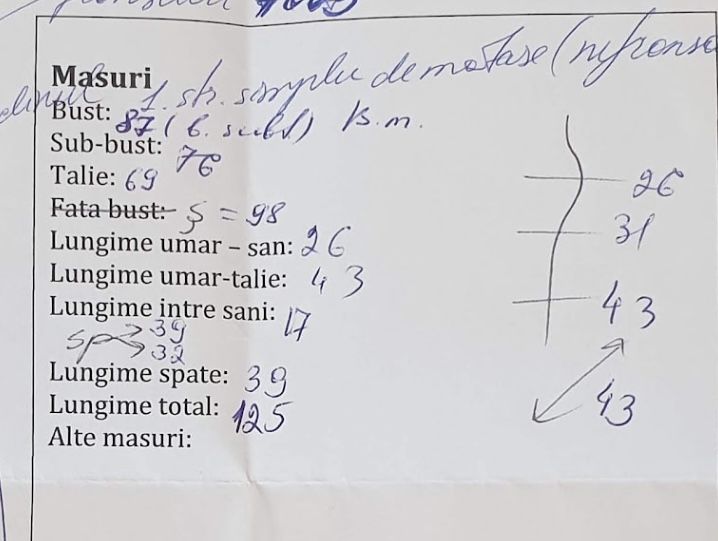 Masuri 1. str. simplu de matase (nefronsa
Bust: 87 ( b. subt) B.m.
Sub-bust: 76
Talie: 69
Fata bust: Ș = 98
Lungime umar – san: 26
Lungime umar-talie: 43
Lungime intre sani: 17
sp 39
32
Lungime spate: 39
Lungime total: 125
Alte masuri:
26
31
43
43